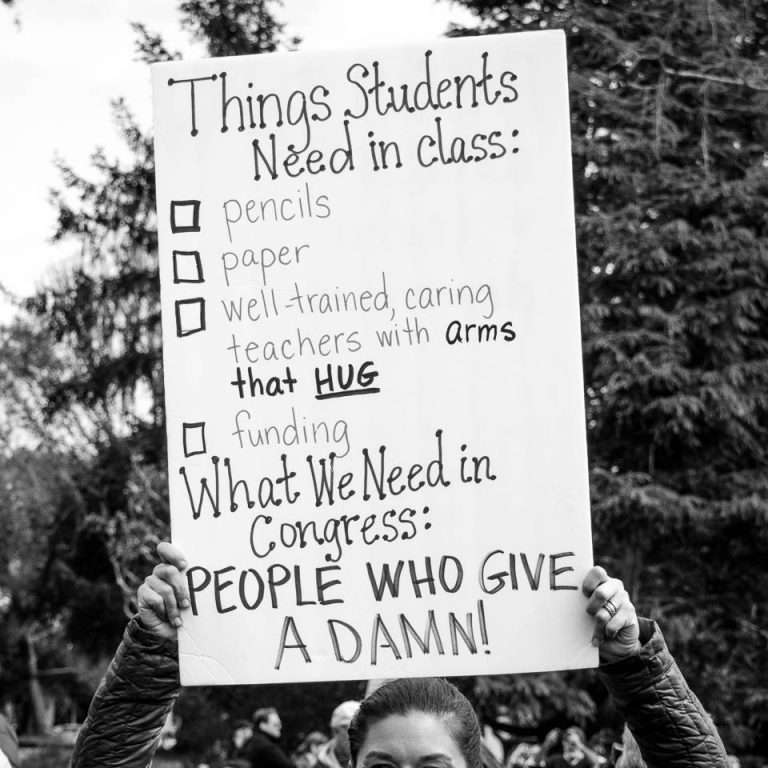 Things Students
Need in class:
pencils
paper
well-trained, caring
teachers with arms
that HUG
funding
What We Need in
Congress:
PEOPLE WHO GIVE
A DAMN!